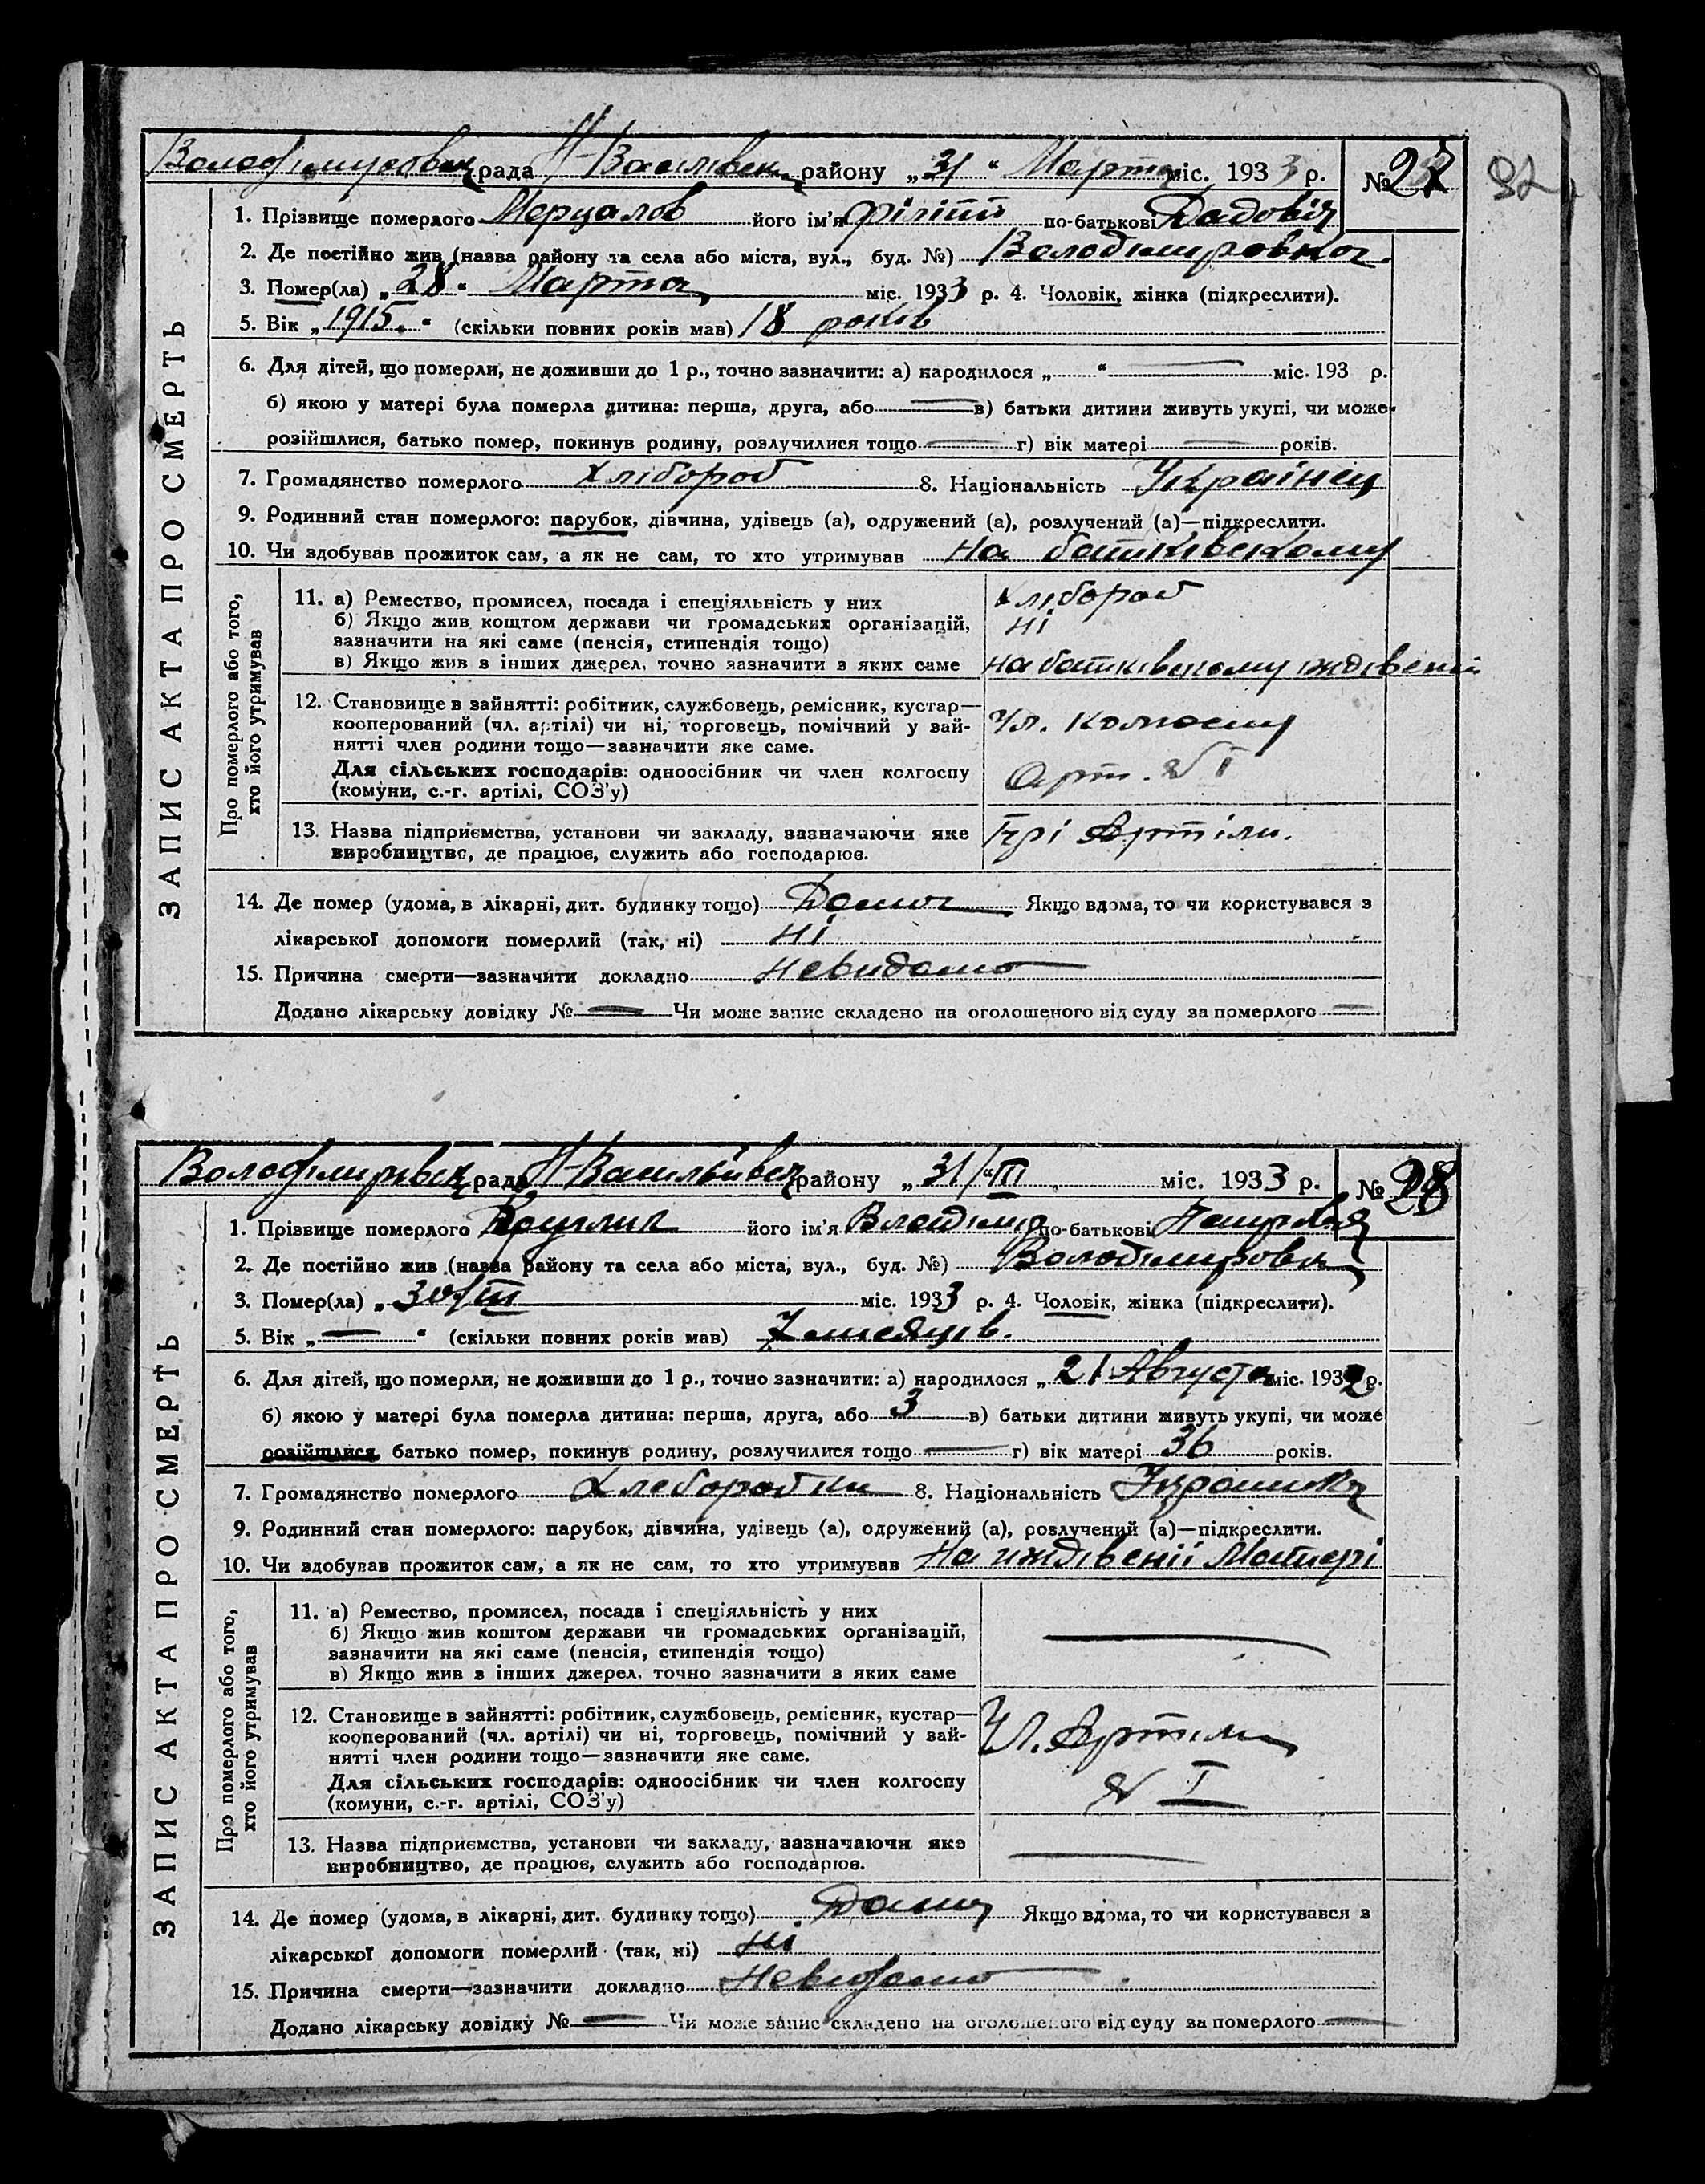 рада Н-Васілівск. району „31“ Марта міс. 1933 р. № 27
92
1. Прізвище померлого Мерцалов його ім'я Філіпп по-батькові
2. Де постійно жив (назва району та села або міста, вул., буд. №) Володімировка
3. Помер(ла) „28“ Марта міс. 1933 р. 4. Чоловік, жінка (підкреслити).
5. Вік „1915.“ (скільки повних років мав) 18 років
6. Для дітей, що померли, не доживши до 1 р., точно зазначити: а) народилося „ “ — міс. 193 р.
б) якою у матері була померла дитина: перша, друга, або — в) батьки дитини живуть укупі, чи може
розійшлися, батько помер, покинув родину, розлучилися тощо — г) вік матері — років.
7. Громадянство померлого Хлібороб 8. Національність Українец
9. Родинний стан померлого: парубок, дівчина, удівець (а), одружений (а), розлучений (а)—підкреслити.
10. Чи здобував прожиток сам, а як не сам, то хто утримував на батьківскому
ЗАПИС АКТА ПРО СМЕРТЬ
Про померлого або того,
хто його утримував
11. а) Ремество, промисел, посада і спеціяльність у них Хлібороб
б) Якщо жив коштом держави чи громадських організацій, Ні
зазначити на які саме (пенсія, стипендія тощо)
в) Якщо жив з інших джерел, точно зазначити з яких саме на батьківскому іждівенії
12. Становище в зайнятті: робітник, службовець, ремісник, кустар—
кооперований (чл. артілі) чи ні, торговець, помічний у зай- Чл. Колгоспу
нятті член родини тощо—зазначити яке саме.
Для сільських господарів: одноосібник чи член колгоспу Арт. № I
(комуни, с.-г. артілі, СОЗ'у)
13. Назва підприємства, установи чи закладу, зазначаючи яке Прі Артіли.
виробництво, де працює, служить або господарює.
14. Де помер (удома, в лікарні, дит. будинку тощо) Дома Якщо вдома, то чи користувався з
лікарської допомоги померлий (так, ні) Ні
15. Причина смерти—зазначити докладно Невидомо
Додано лікарську довідку № — Чи може запис складено на оголошеного від суду за померлого —
рада району „31/III міс. 1933 р. № 28
1. Прізвище померлого його ім'я Владімір по-батькові
2. Де постійно жив (назва району та села або міста, вул., буд. №) Володімировка
3. Помер(ла) „30/III міс. 1933 р. 4. Чоловік, жінка (підкреслити).
5. Вік „—“ (скільки повних років мав) 7 місяців.
6. Для дітей, що померли, не доживши до 1 р., точно зазначити: а) народилося „21 Августа міс. 1932 р.
б) якою у матері була померла дитина: перша, друга, або 3 в) батьки дитини живуть укупі, чи може
розійшлися, батько помер, покинув родину, розлучилися тощо — г) вік матері 36 років.
7. Громадянство померлого 8. Національність
9. Родинний стан померлого: парубок, дівчина, удівець (а), одружений (а), розлучений (а)—підкреслити.
10. Чи здобував прожиток сам, а як не сам, то хто утримував На иждівенії Матері
ЗАПИС АКТА ПРО СМЕРТЬ
Про померлого або того,
хто його утримував
11. а) Ремество, промисел, посада і спеціяльність у них
б) Якщо жив коштом держави чи громадських організацій, —
зазначити на які саме (пенсія, стипендія тощо)
в) Якщо жив з інших джерел, точно зазначити з яких саме
12. Становище в зайнятті: робітник, службовець, ремісник, кустар—
кооперований (чл. артілі) чи ні, торговець, помічний у зай- Чл. Артіли
нятті член родини тощо—зазначити яке саме.
Для сільських господарів: одноосібник чи член колгоспу № I
(комуни, с.-г. артілі, СОЗ'у)
13. Назва підприємства, установи чи закладу, зазначаючи яке —
виробництво, де працює, служить або господарює.
14. Де помер (удома, в лікарні, дит. будинку тощо) Дома Якщо вдома, то чи користувався з
лікарської допомоги померлий (так, ні) Ні
15. Причина смерти—зазначити докладно Невидомо
Додано лікарську довідку № — Чи може запис складено на оголошеного від суду за померлого —